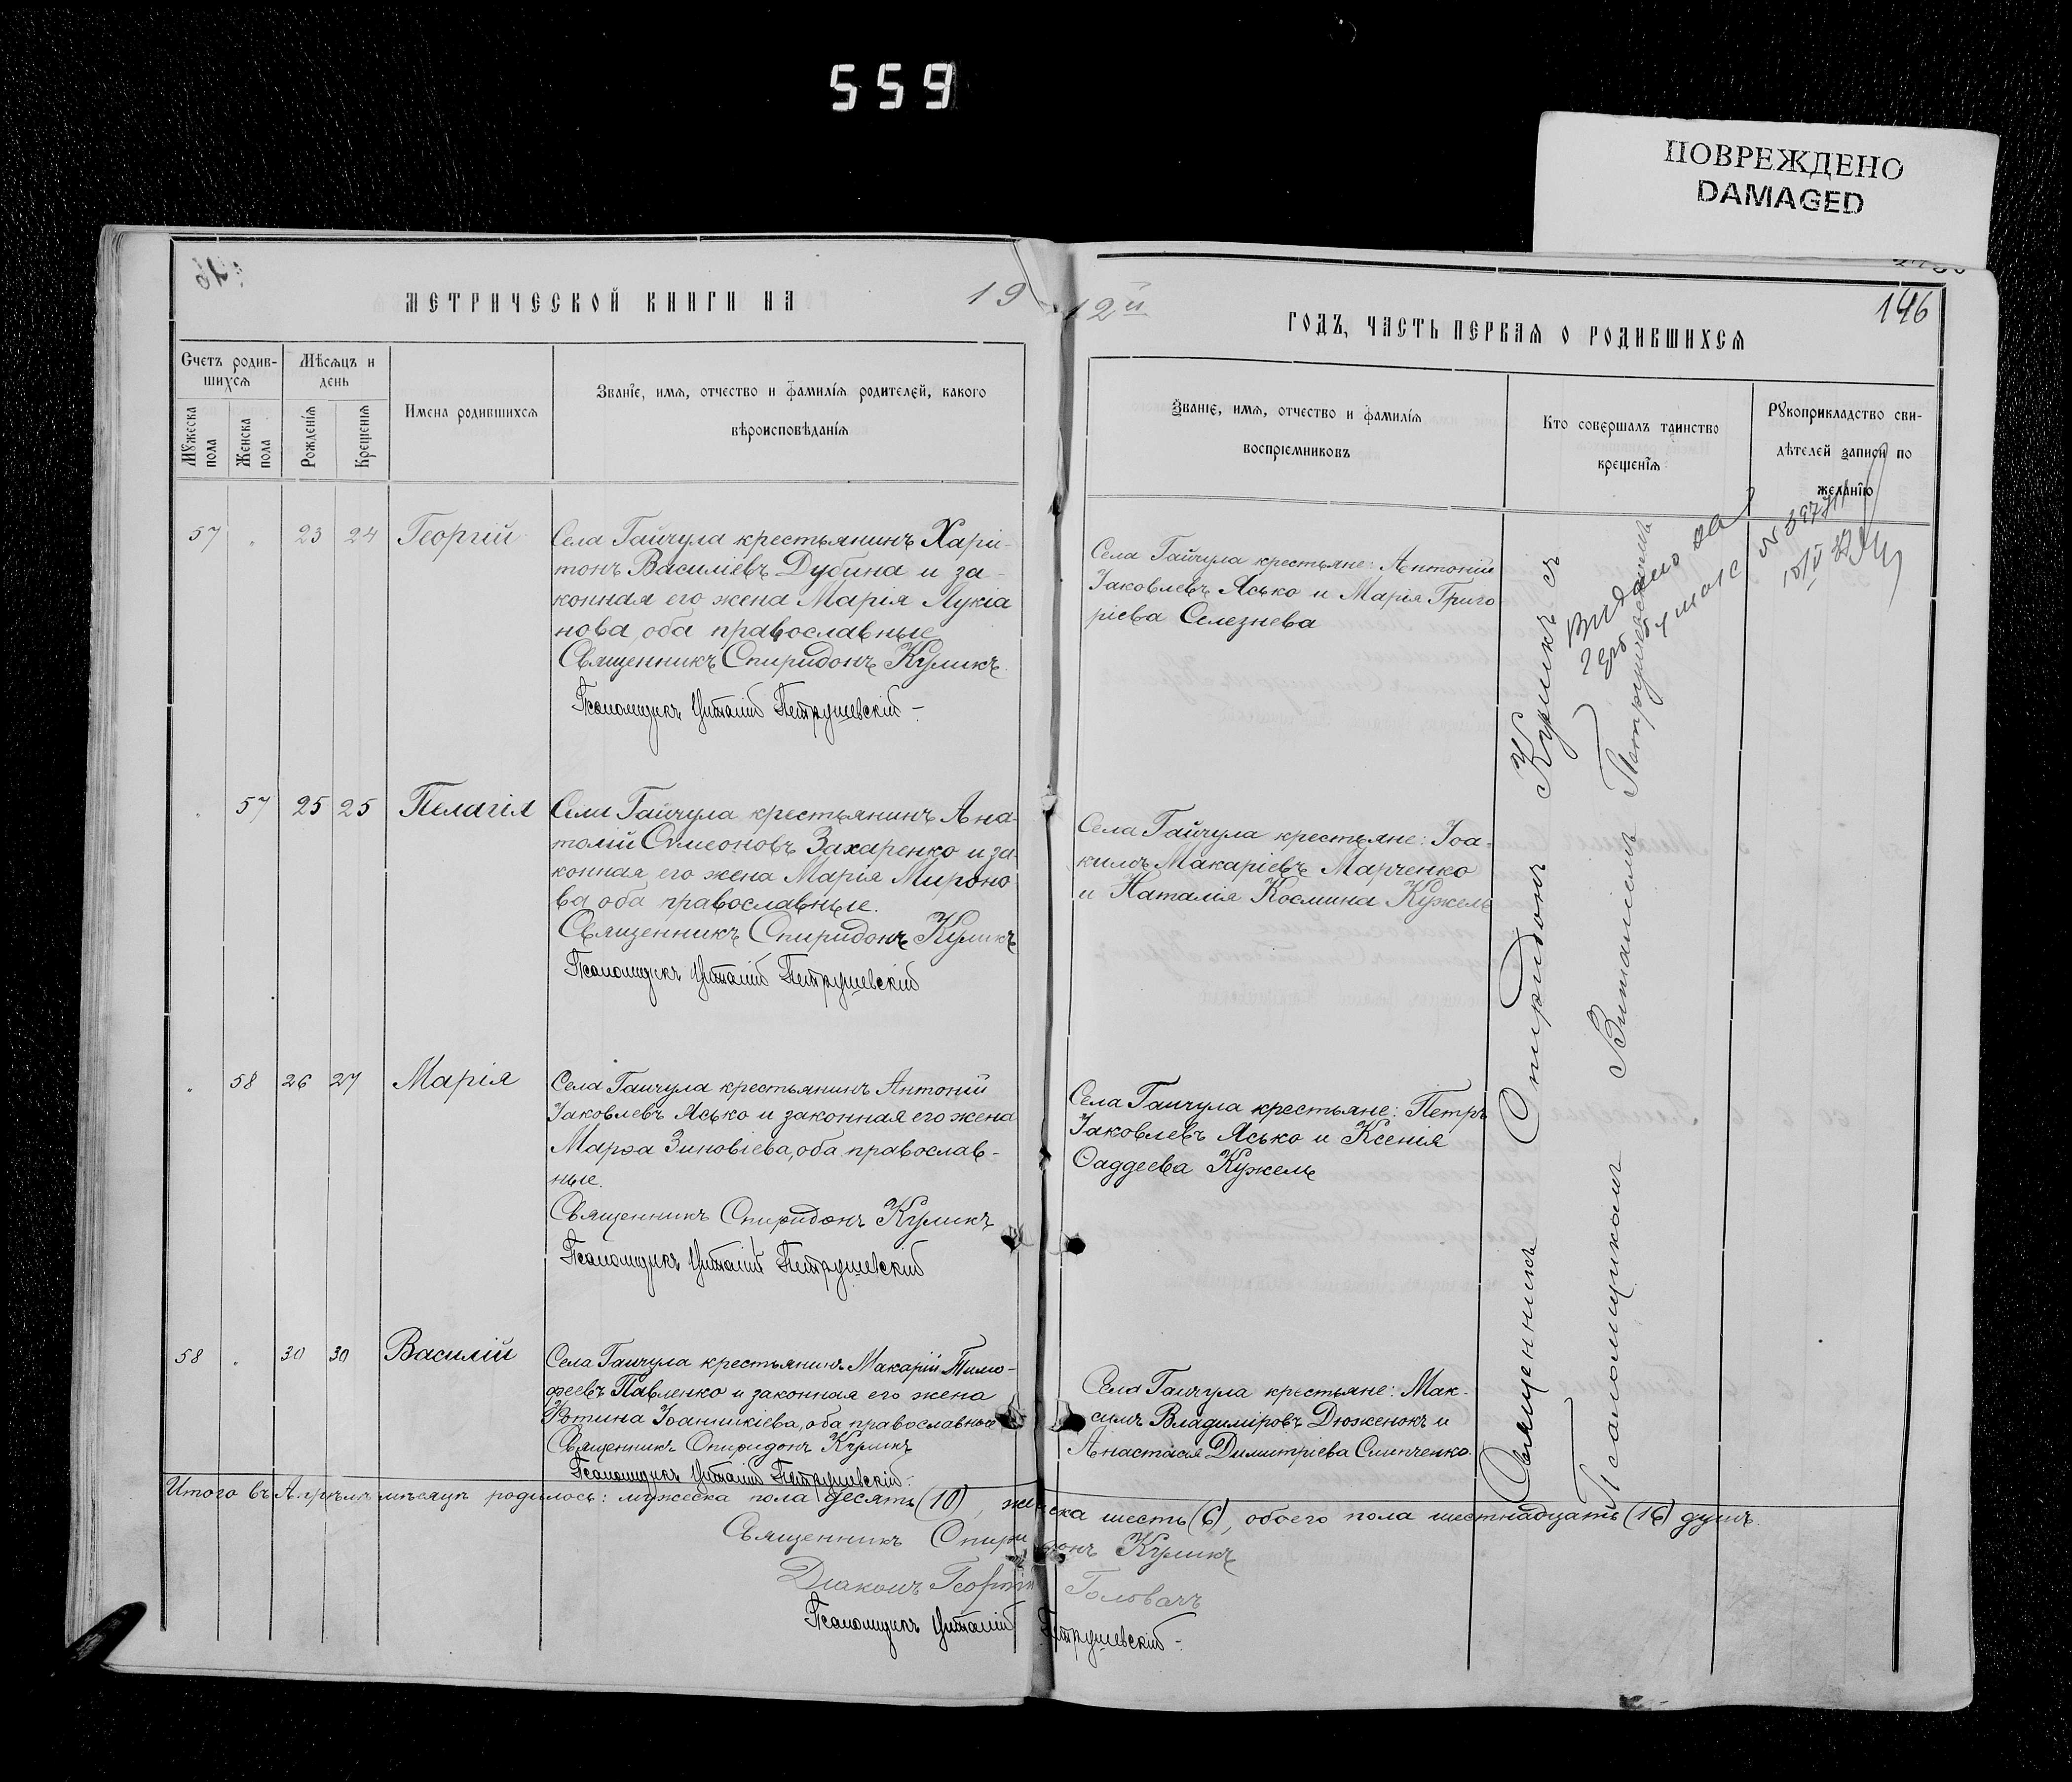 559
ПОВРЕЖДЕНО
DAMAGED
146
МЕТРИЧЕСКОЙ КНИГИ НА 19
12й ГОДЪ, ЧАСТЬ ПЕРВАЯ О РОДИВШИХСЯ
Счетъ родив-
шихся
Мѣсяцъ и
день
Мужеска
пола
Женска
пола
Рожденія
Крещенія
Имена родившихся
Званіе, имя, отчество и фамилія родителей, какого
вѣроисповѣданія
Званіе, имя, отчество и фамилія
воспріемниковъ
Кто совершалъ таинство
крещенія
Рукоприкладство сви-
дѣтелей записи по
желанію
57 " 23 24 Георгій
Села Гайчула крестьянинъ Хари-
тонъ Василіевъ Дубина и за-
конная его жена Марія Лукіа
нова, оба православные
Священникъ Спиридонъ Куликъ
Псаломщикъ Виталій Петрушевскій
Села Гайчула крестьяне: Антоній
Іаковлевъ Ясько и Марія Григо
ріева Селезнева
" 57 25 25 Пелагія
Села Гайчула крестьянинъ Ана-
толій Симеоновъ Захаренко и за
конная его жена Марія Мироно
ва, оба православные.
Священникъ Спиридонъ Куликъ
Псаломщикъ Виталій Петрушевскій
Села Гайчула крестьяне: Іоа-
кимъ Макаріевъ Марченко
и Наталія Космина Кужель
" 58 26 27 Марія
Села Гайчула крестьянинъ Антоній
Іаковлевъ Ясько и законная его жена
Марѳа Зиновіева, оба православ-
ные.
Священникъ Спиридонъ Куликъ
Псаломщикъ Виталій Петрушевскій
Села Гайчула крестьяне: Петръ
Іаковлевъ Ясько и Ксенія
Ѳаддеева Кужель
58 " 30 30 Василій
Села Гайчула крестьянинъ Макарій Тимо-
феевъ Павленко и законная его жена
Фотина Іоанникіева, оба православные
Священникъ Спиридонъ Куликъ
Псаломщикъ Виталій Петрушевскій
Села Гайчула крестьяне: Мак-
симъ Владиміровъ Дюженокъ и
Анастасія Димитріева
Священникъ Спиридонъ Куликъ съ
Псаломщикомъ Виталіемъ Петрушевскимъ
Видано
Итого въ Апрѣлѣ мѣсяцѣ родилось: мужеска пола десять (10), женска шесть (6), обоего пола шестнадцать (16) душъ.
Священникъ Спиридонъ Куликъ
Діаконъ Георгій Головачъ
Псаломщикъ Виталій Петрушевскій